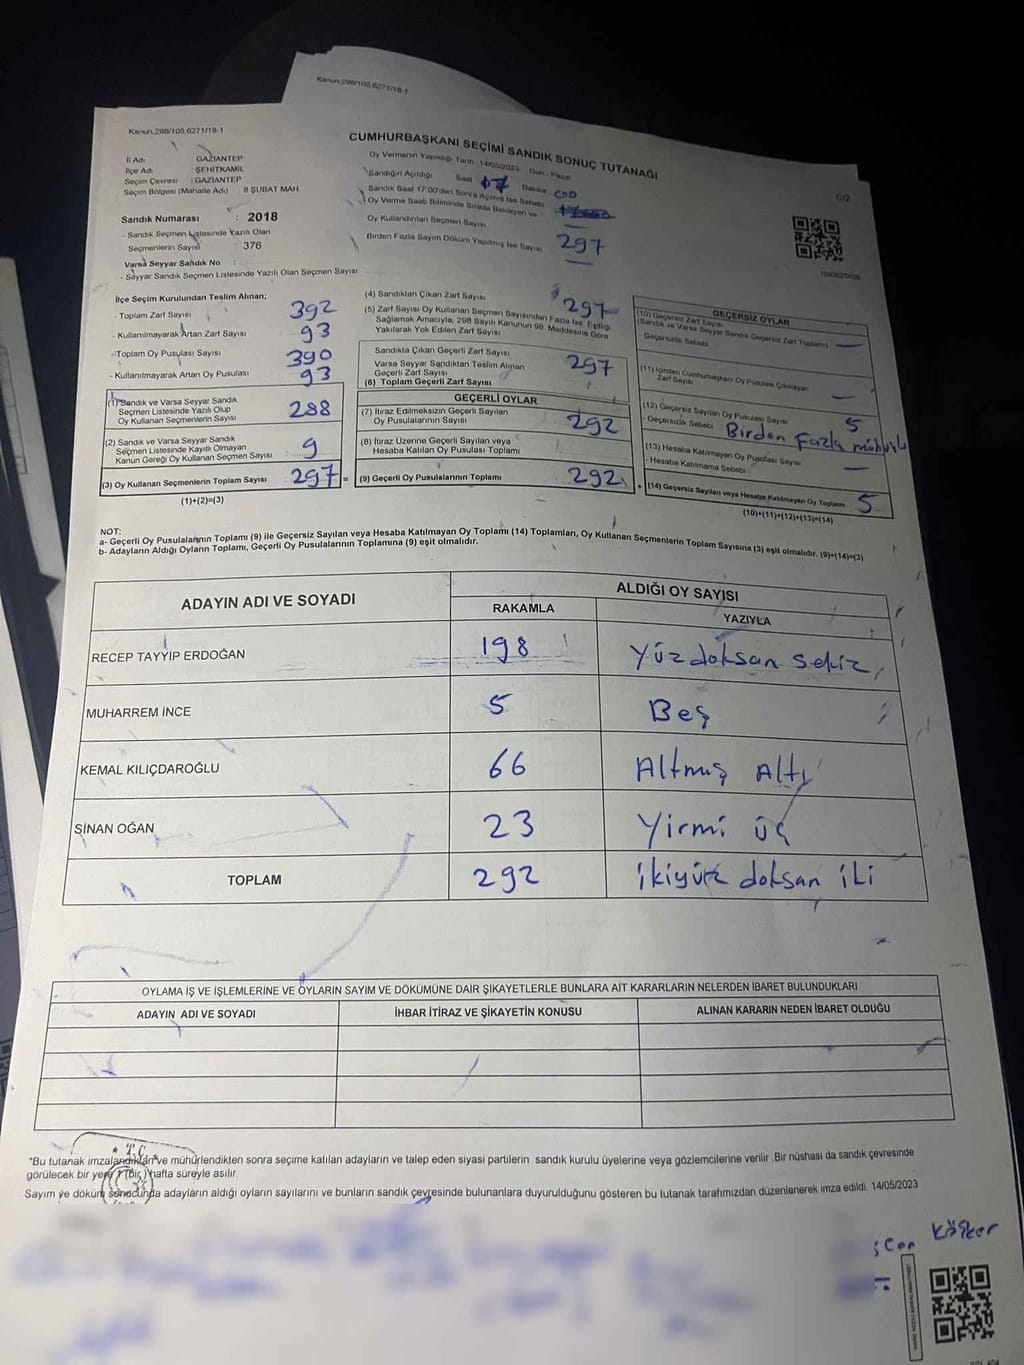 Kanun:298/105,6271/18-1
Kanun:298/105,6271/18-1
CUMHURBAŞKANI SEÇİMİ SANDIK SONUÇ TUTANAĞI
C/2
İl Adı GAZİANTEP
İlçe Adı ŞEHİTKAMİL
Seçim Çevresi : GAZİANTEP
Seçim Bölgesi (Mahalle Adı) 8 ŞUBAT MAH
Oy Vermenin Yapıldığı Tarih : 14/05/2023 Gün : Pazar
Sandığın Açıldığı Saat 17 Dakika
Sandık Saat 17:00'den Sonra Açılmış İse Sebebi
Oy Verme Saati Bitiminde Sırada Bekleyen ve
Oy Kullandırılan Seçmen Sayısı
Birden Fazla Sayım Döküm Yapılmış İse Sayısı 297
Sandık Numarası : 2018
- Sandık Seçmen Listesinde Yazılı Olan
Seçmenlerin Sayısı : 376
Varsa Seyyar Sandık No :
- Seyyar Sandık Seçmen Listesinde Yazılı Olan Seçmen Sayısı
İlçe Seçim Kurulundan Teslim Alınan;
- Toplam Zarf Sayısı : 392
- Kullanılmayarak Artan Zarf Sayısı : 93
- Toplam Oy Pusulası Sayısı : 390
- Kullanılmayarak Artan Oy Pusulası : 93
(1) Sandık ve Varsa Seyyar Sandık
Seçmen Listesinde Yazılı Olup
Oy Kullanan Seçmenlerin Sayısı 288
(2) Sandık ve Varsa Seyyar Sandık
Seçmen Listesinde Kayıtlı Olmayan
Kanun Gereği Oy Kullanan Seçmen Sayısı 9
(3) Oy Kullanan Seçmenlerin Toplam Sayısı : 297 =
(1)+(2)=(3)
(4) Sandıktan Çıkan Zarf Sayısı 297
(5) Zarf Sayısı Oy Kullanan Seçmen Sayısından Fazla İse, Eşitliği
Sağlamak Amacıyla, 298 Sayılı Kanunun 98. Maddesine Göre
Yakılarak Yok Edilen Zarf Sayısı
Sandıkta Çıkan Geçerli Zarf Sayısı 297
Varsa Seyyar Sandıktan Teslim Alınan
Geçerli Zarf Sayısı
(6) Toplam Geçerli Zarf Sayısı
GEÇERLİ OYLAR
(7) İtiraz Edilmeksizin Geçerli Sayılan
Oy Pusulalarının Sayısı 292
(8) İtiraz Üzerine Geçerli Sayılan veya
Hesaba Katılan Oy Pusulası Toplamı
(9) Geçerli Oy Pusulalarının Toplamı 292 +
GEÇERSİZ OYLAR
(10) Geçersiz Zarf Sayısı
(Sandık ve Varsa Seyyar Sandık Geçersiz Zarf Toplamı) —
- Geçersizlik Sebebi
(11) İçinden Cumhurbaşkanı Oy Pusulası Çıkmayan
Zarf Sayısı —
(12) Geçersiz Sayılan Oy Pusulası Sayısı 5
- Geçersizlik Sebebi : Birden fazla mühürlü
(13) Hesaba Katılmayan Oy Pusulası Sayısı —
- Hesaba Katılmama Sebebi :
(14) Geçersiz Sayılan veya Hesaba Katılmayan Oy Toplamı 5
(10)+(11)+(12)+(13)=(14)
NOT:
a- Geçerli Oy Pusulalarının Toplamı (9) ile Geçersiz Sayılan veya Hesaba Katılmayan Oy Toplamı (14) Toplamları, Oy Kullanan Seçmenlerin Toplam Sayısına (3) eşit olmalıdır. (9)+(14)=(3)
b- Adayların Aldığı Oyların Toplamı, Geçerli Oy Pusulalarının Toplamına (9) eşit olmalıdır.
ADAYIN ADI VE SOYADI ALDIĞI OY SAYISI
RAKAMLA YAZIYLA
RECEP TAYYİP ERDOĞAN 198 Yüzdoksan sekiz
MUHARREM İNCE 5 Beş
KEMAL KILIÇDAROĞLU 66 Altmış Altı
SİNAN OĞAN 23 Yirmi üç
TOPLAM 292 ikiyüz doksan iki
OYLAMA İŞ VE İŞLEMLERİNE VE OYLARIN SAYIM VE DÖKÜMÜNE DAİR ŞİKAYETLERLE BUNLARA AİT KARARLARIN NELERDEN İBARET BULUNDUKLARI
ADAYIN ADI VE SOYADI İHBAR İTİRAZ VE ŞİKAYETİN KONUSU ALINAN KARARIN NEDEN İBARET OLDUĞU
T.C.
"Bu tutanak imzalandıktan ve mühürlendikten sonra seçime katılan adayların ve talep eden siyasi partilerin sandık kurulu üyelerine veya gözlemcilerine verilir. Bir nüshası da sandık çevresinde
görülecek bir yere 1 (bir) hafta süreyle asılır.
Sayım ve döküm sonucunda adayların aldığı oyların sayılarını ve bunların sandık çevresinde bulunanlara duyurulduğunu gösteren bu tutanak tarafımızdan düzenlenerek imza edildi. 14/05/2023
Köşker